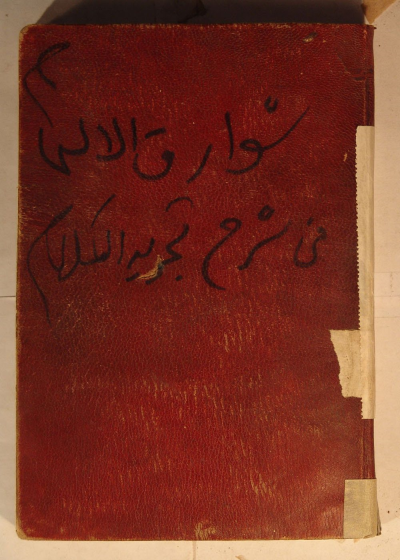 شوارق الالهام
في شرح تجريد الكلام